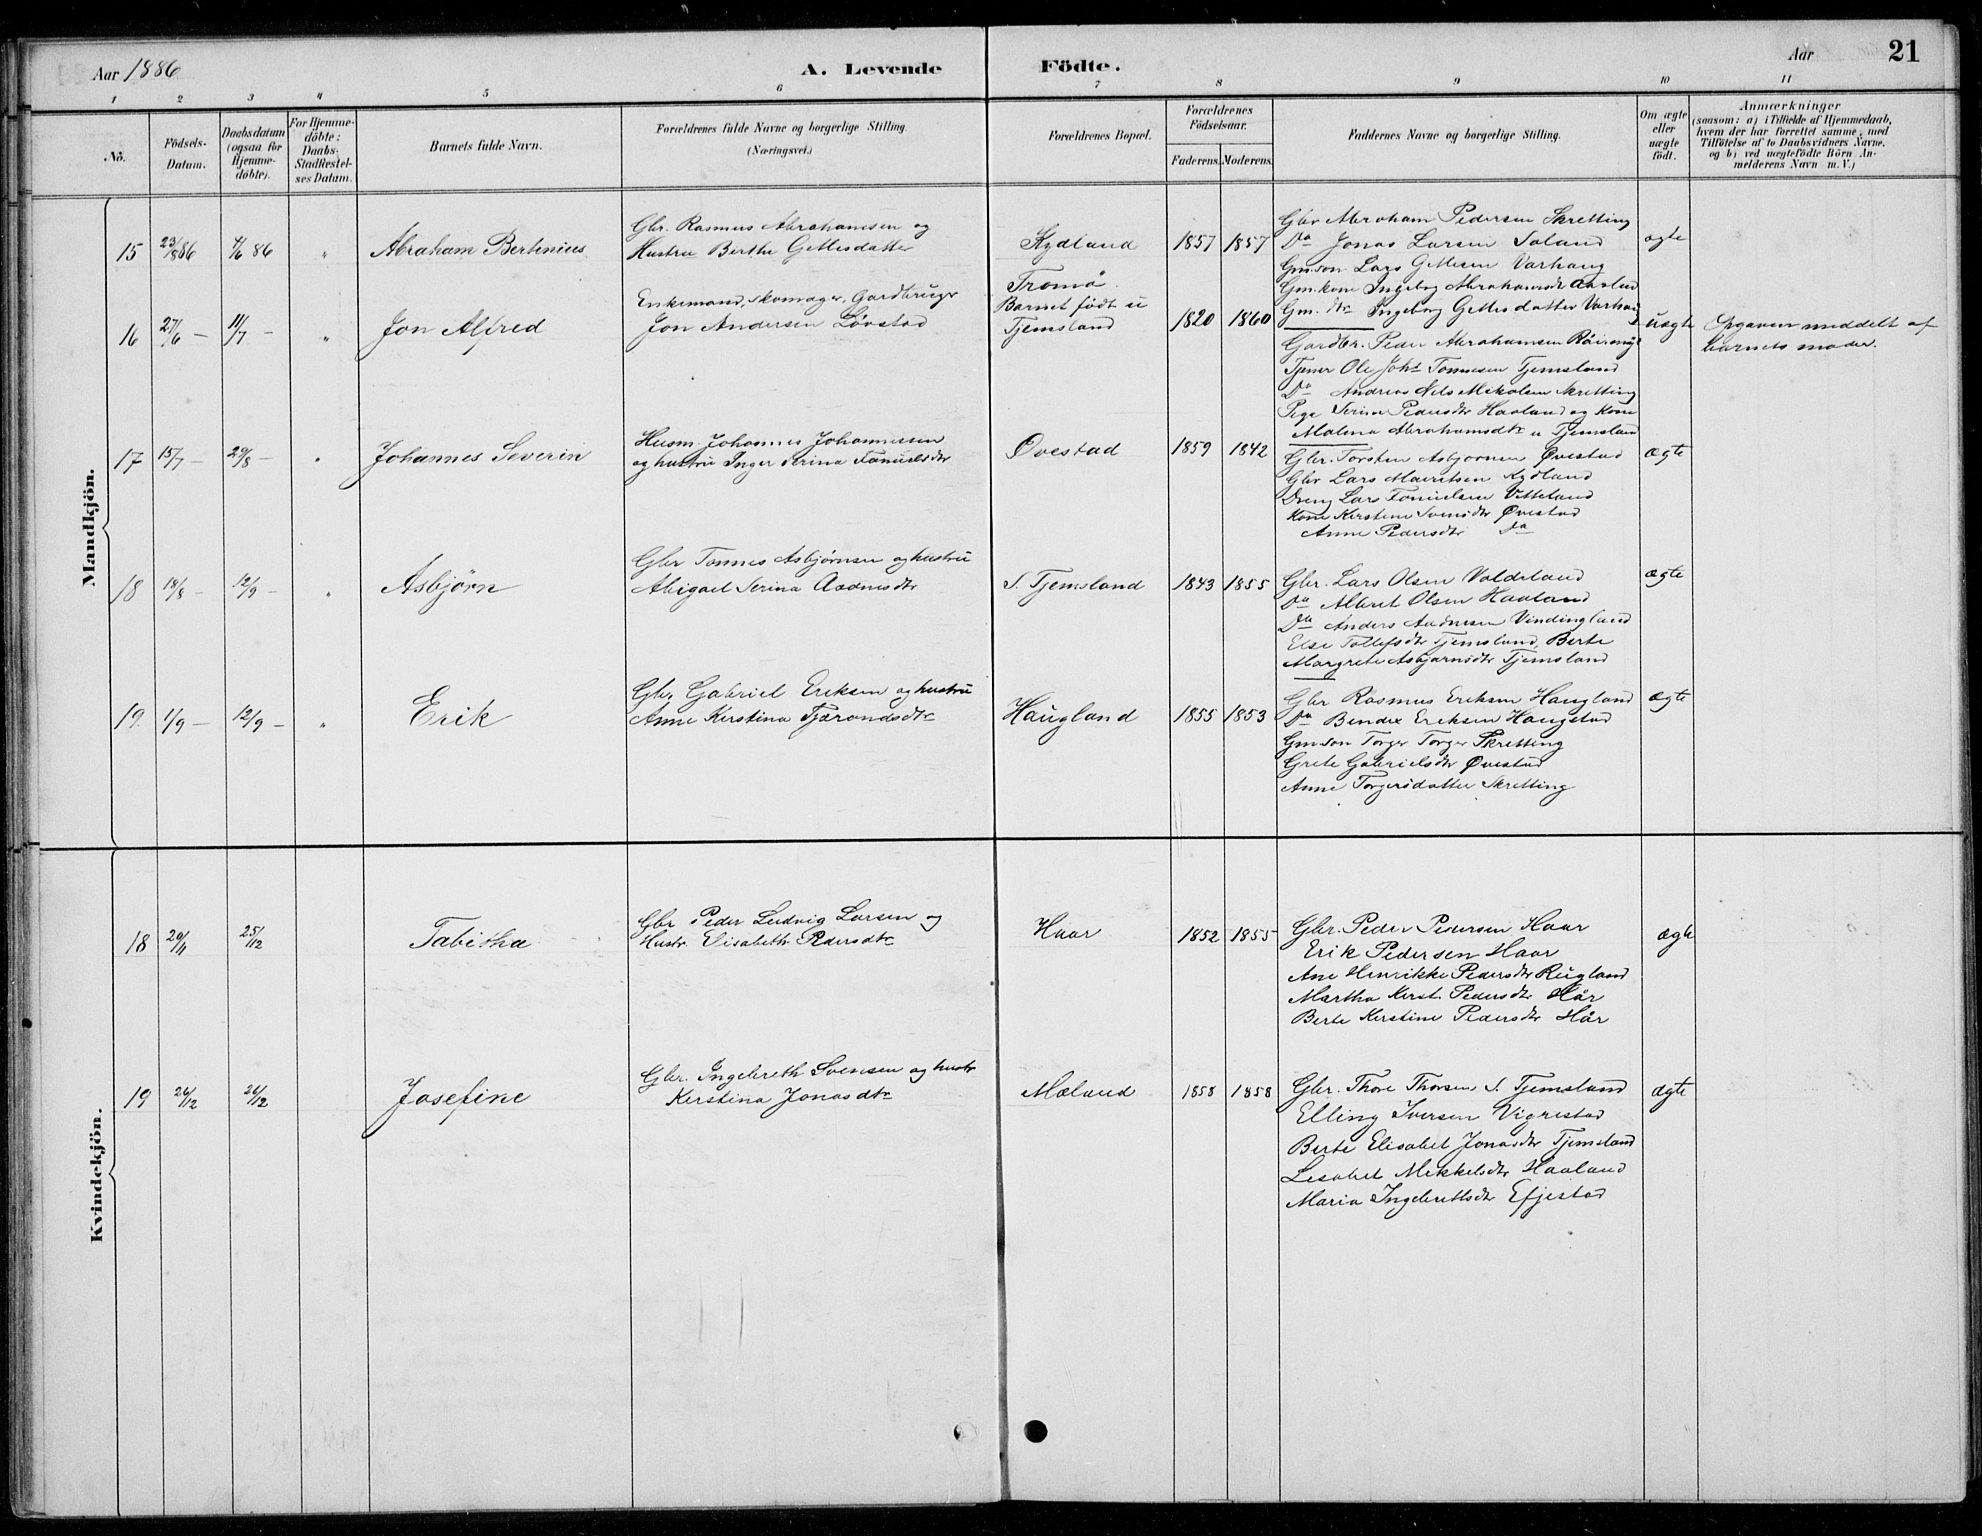 Aar 1886
A. Levende Födte.
Aar
21
1 2 3 4 5 6 7 8 9 10 11
No.
Födsels-Datum.
Daabsdatum (ogsaa for Hjemme-döbte).
For Hjemme-döbte: Daabs-Stadfæstel-ses Datum.
Barnets fulde Navn.
Forældrenes fulde Navne og borgerlige Stilling.
(Næringsvei.)
Forældrenes Bopæl.
Forældrenes Födselsaar.
Faderens. Moderens.
Faddernes Navne og borgerlige Stilling.
Om ægte eller uægte födt.
Anmærkninger
(saasom: a) i Tilfælde af Hjemmedaab,
hvem der har forrettet samme, med
Tilföielse af to Daabsvidners Navne,
og b) ved uægtefödte Börn An-
melderens Navn m. V.)
Mandkjön.
15 23/8 86 86 " Abraham Bertinius
Gbr. Rasmus Abrahamsen og
Hustru Berthe Gitlesdatter
Kydland 1857 1857
Gbr Abraham Pedersen Skretting
Do Jonas Larsen Soland
Gm.son Lars Gitlesen Varhaug
Gm.kone Ingeborg Abrahamsdtr
Gm. dtr Ingeborg Gitlesdatter Varhaug
ægte
16 27/6 — 11/7 — " Jon Alfred
Enkemand, skomager, Gardbruger
Jon Andersen Lövstad
Tromö.
Barnet födt i
Tjemsland
1820 1860
Gardbr. Peder Abrahamsen
Tjener Ole Johs Tonnesen Tjemsland
Do Andreas Nels Mikalsen Skretting
Pige Serina Pedersdtr Haaland og Kone
Malena Abrahamsdtr Tjemsland
uægte
Opgaven meddelt af
barnets moder.
17 15/7 — 29/8 — " Johannes Severin
Husm. Johannes Johannessen
og hustru Inger Serina
Øvestad 1859 1842
Gbr. Torsten Asbjørnsen Øvestad
Gbr Lars Mauritsen Kydland
Dreng Lars
Kone Kerstine Svensdtr Øvestad
Anne Pedersdtr Do
ægte
18 18/8 — 12/9 — " Asbjörn
Gbr Tonnes Asbjørnsen og hustru
Abigael Serina Aadnesdtr
S. Tjemsland 1843 1855
Gbr. Lars Olsen Valdeland
Do Albret Olsen Haaland
Do Anders Aadnesen Vindingland
Else Tollefsdtr Tjemsland, Berte
Margrete Asbjørnsdtr Tjemsland
ægte
19. 1/9 — 12/9 — " Erik
Gbr Gabriel Eriksen og hustru
Anne Kerstina Tjærandsdtr
Haugland 1855 1853
Gbr Rasmus Eriksen Haugland
Do Bendix Eriksen Haugstad
Gmson Torger Torger Skretting
Grete Gabrielsdtr Øvestad
Anne Torgersdatter Skretting
ægte
Kvindekjön.
18 20/11 25/12 Tabitha
Gbr Peder Ludvig Larsen og
Hustr. Elisabeth Pedersdtr
Haar 1852 1855
Gbr. Peder Pedersen Haar
Erik Pedersen Haar
Ane Henrikke Pedersdtr Rugland
Martha Kerst. Pedersdtr Hår
Berte Kerstine Pedersdtr Hår
ægte
19 26/12 26/12 Josefine
Gbr. Ingebreth Svensen og hustr
Kerstina Jonasdtr
Mæland 1858 1858
Gbr. Thore Thorsen S. Tjemsland
Elling Iversen Vigrestad
Berte Elisabet Jonasdtr Tjemsland
Lisabet Mikkelsdtr Haaland
Maria Ingebretsdtr Efjestad
ægte